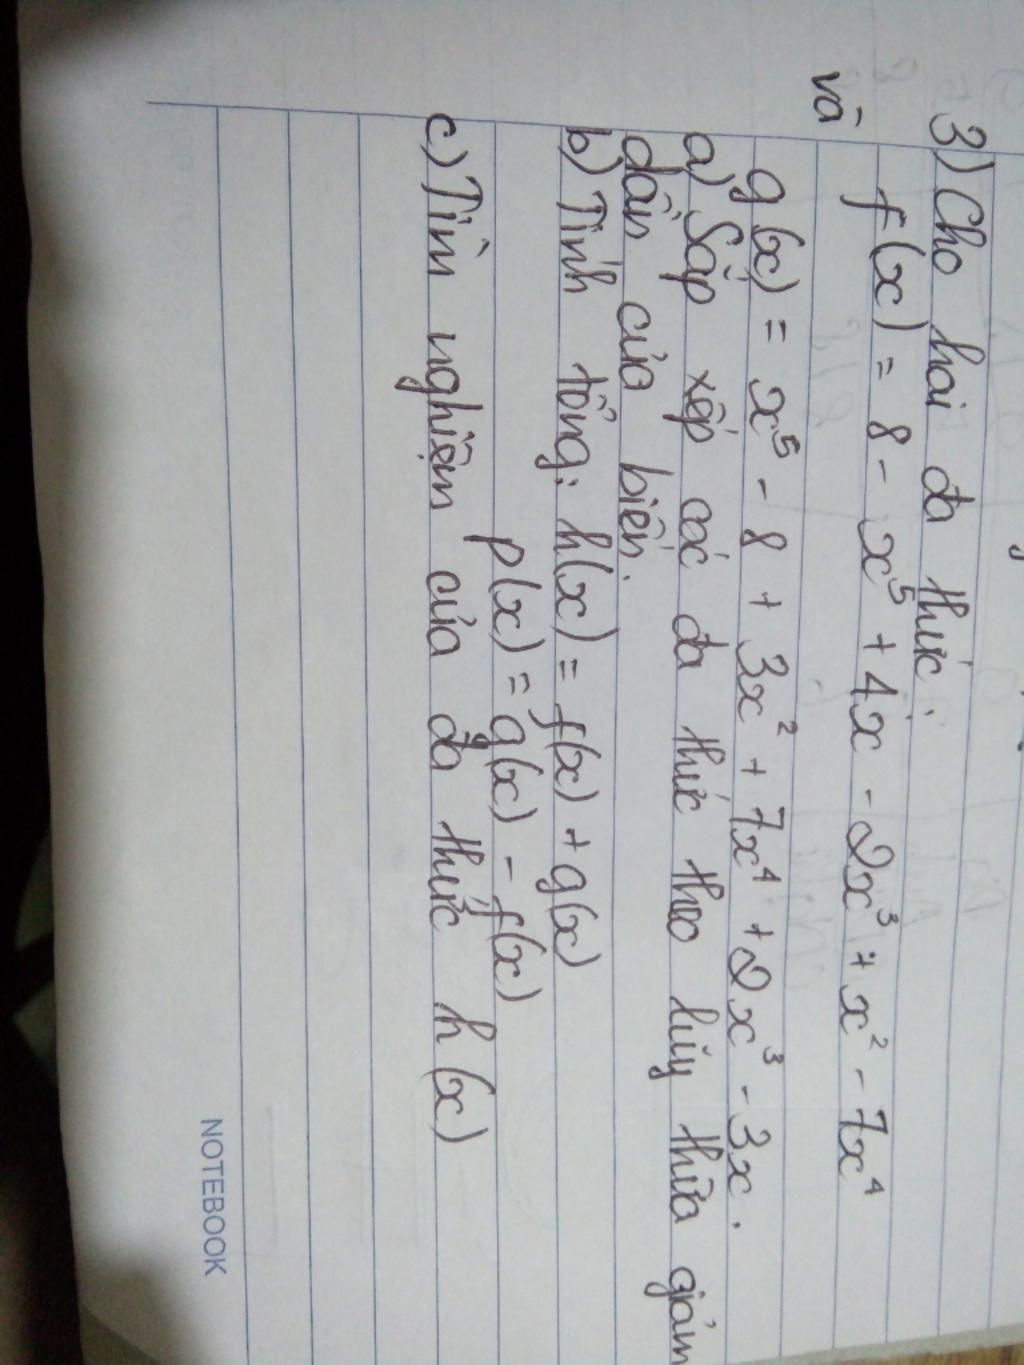 3) Cho hai đa thức:
f(x) = 8 - x⁵ + 4x - 2x³ + x² - 7x⁴
và
g(x) = x⁵ - 8 + 3x² + 7x⁴ + 2x³ - 3x.
a) Sắp xếp các đa thức theo lũy thừa giảm
dần của biến.
b) Tính tổng: h(x) = f(x) + g(x)
p(x) = g(x) - f(x)
c) Tìm nghiệm của đa thức h(x)
NOTEBOOK